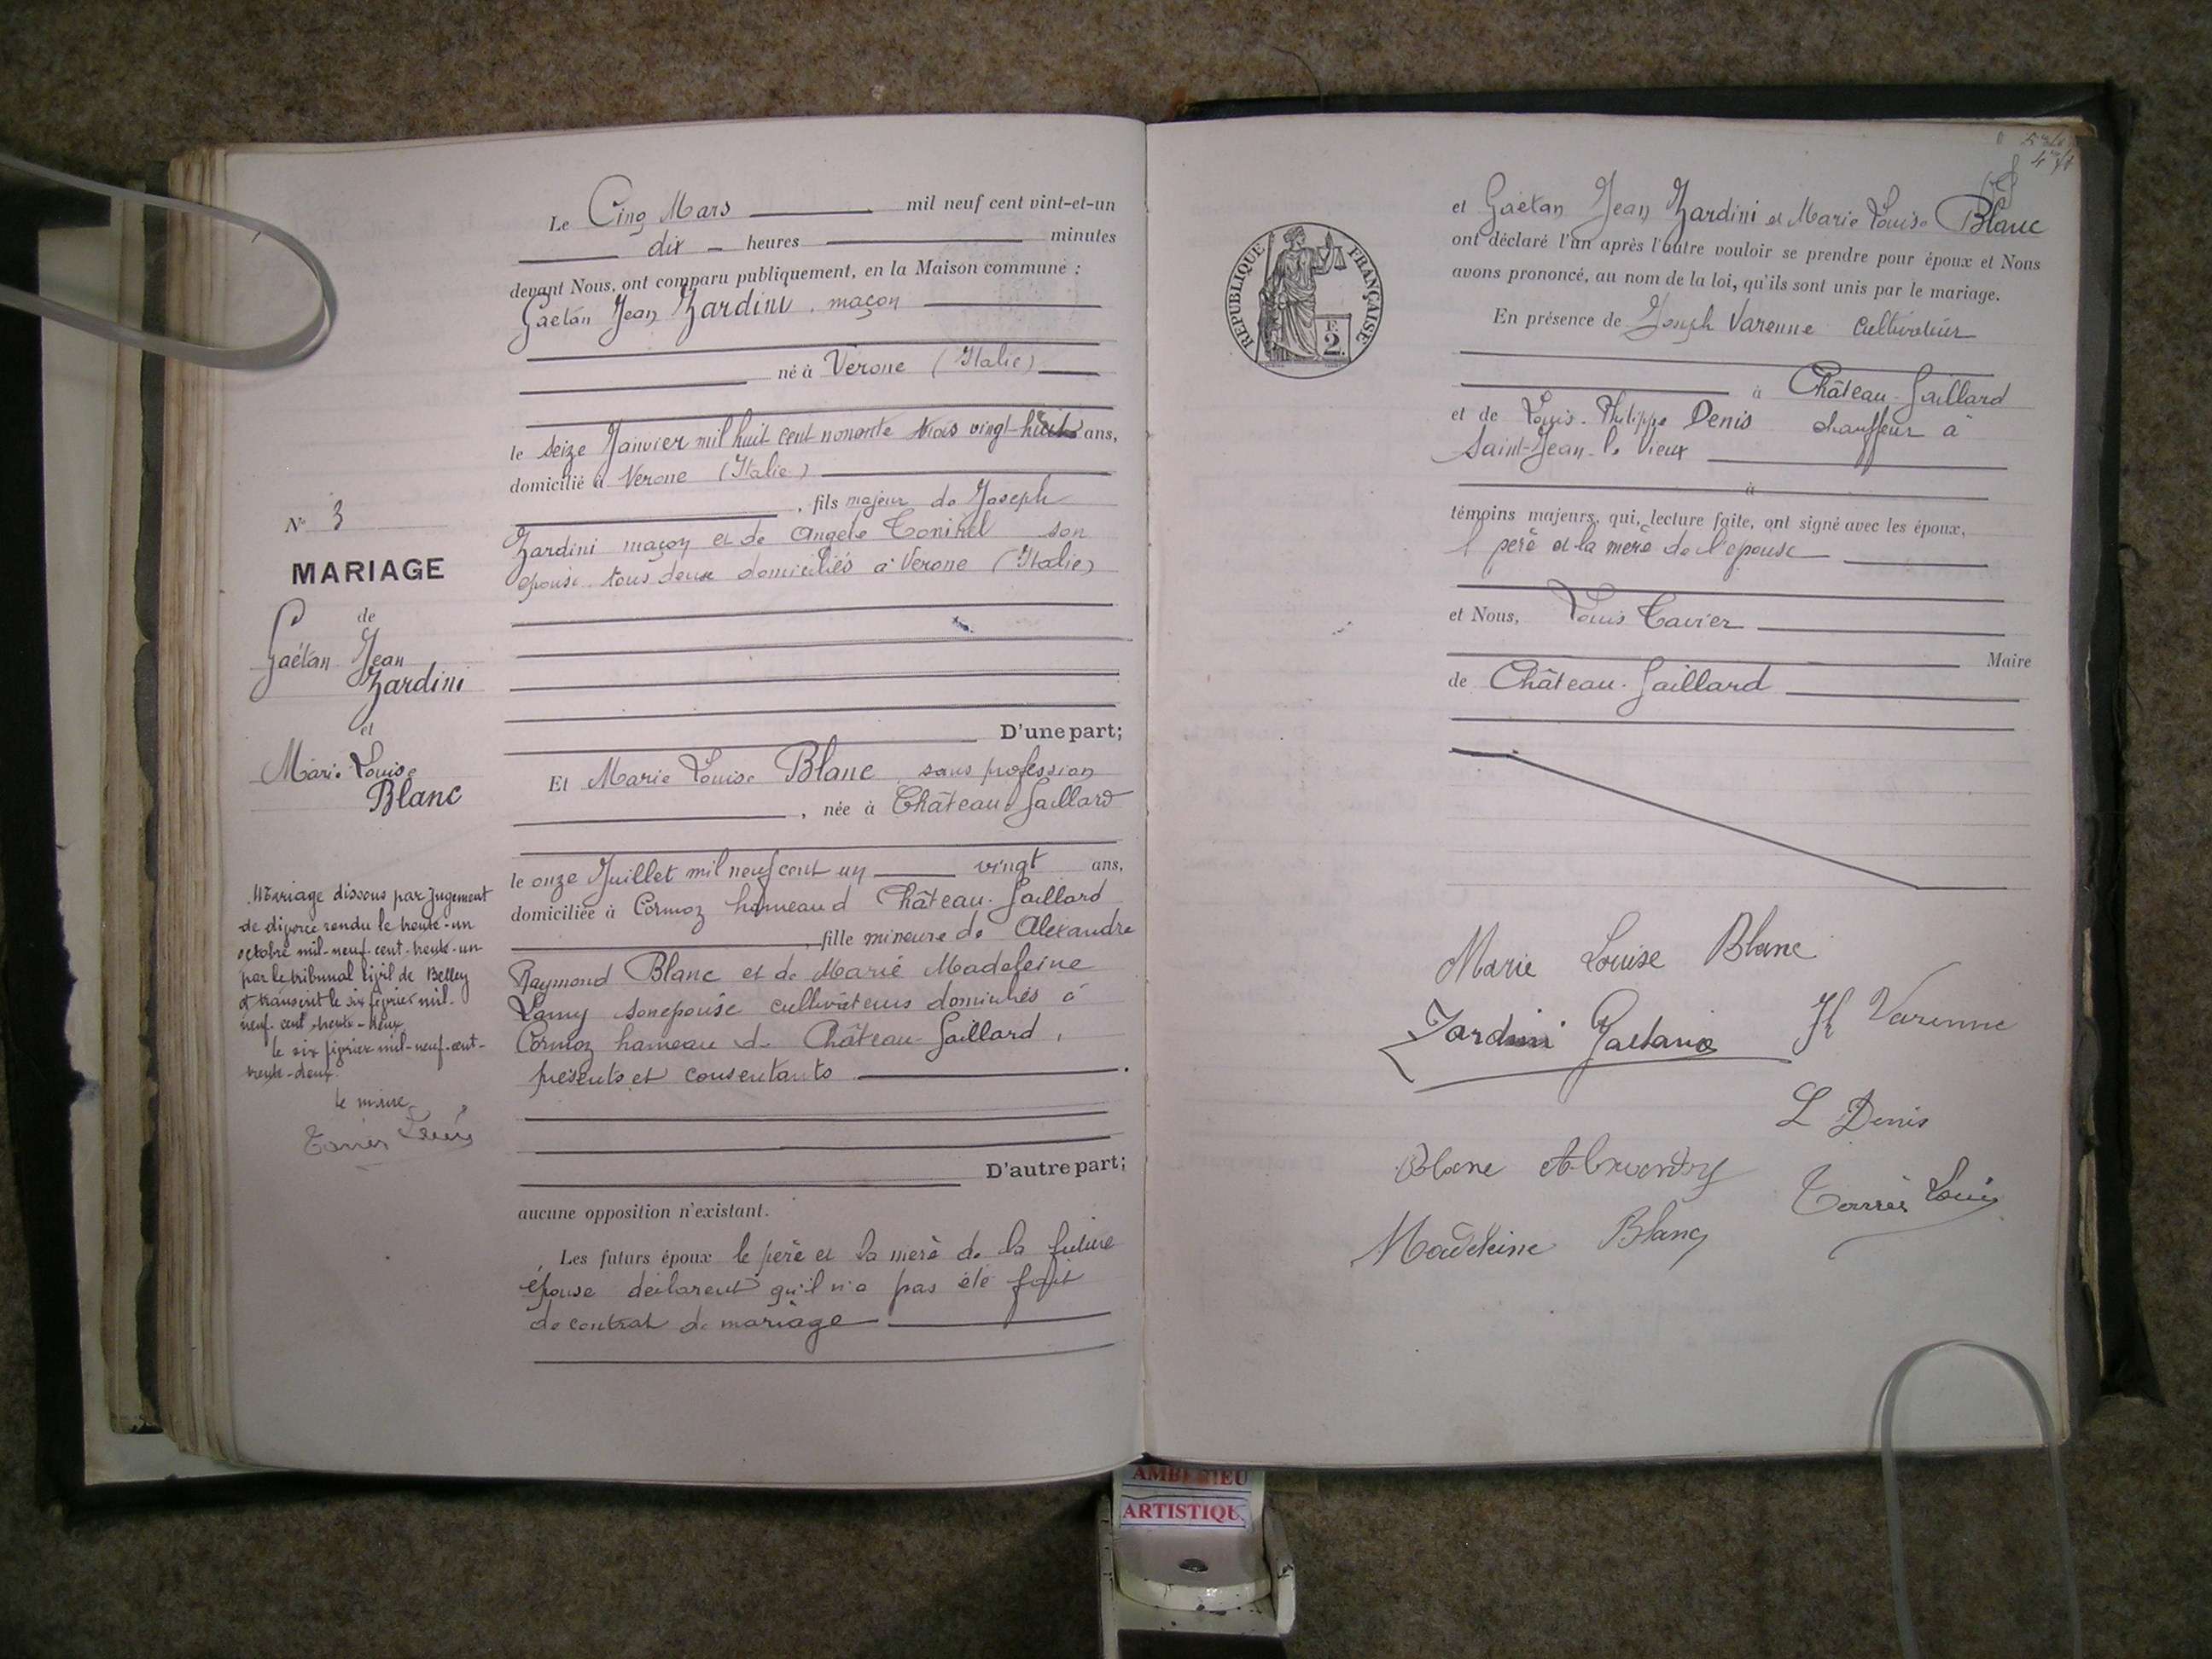 N° 3
MARIAGE
de
Gaétan Jean
Zardini
et
Marie Louise
Blanc
Mariage dissous par jugement
de divorce rendu le trente-un
octobre mil-neuf-cent-trente-un
par le tribunal civil de Belley
et transcrit le six février mil-
neuf-cent-trente-deux
le six février mil-neuf-cent-
trente-deux
le maire
Louis
Le Cinq Mars mil neuf cent vint-et-un
dix heures minutes
devant Nous, ont comparu publiquement, en la Maison commune :
Gaetan Jean Zardini, maçon
né à Verone (Italie)
le seize Janvier mil huit cent nonante trois vingt-huit ans,
domicilié à Verone (Italie)
, fils majeur de Joseph
Zardini maçon et de Angele son
epouse tous deux domiciliés a Verone (Italie)
D'une part;
Et Marie Louise Blanc sans profession
, née à Château-Gaillard
le onze Juillet mil neuf cent un vingt ans,
domiciliée à Cormoz hameau d Château-Gaillard
, fille mineure de Alexandre
Raymond Blanc et de Marie Madeleine
Lamy son epouse cultivateurs domiciliés à
Cormoz hameau de Château-Gaillard,
présents et consentants
D'autre part;
aucune opposition n'existant.
Les futurs époux le père et la mère de la future
épouse déclarent qu'il n'a pas été fait
de contrat de mariage
REPUBLIQUE FRANÇAISE
F. 2
et Gaëtan Jean Zardini et Marie Louise Blanc
ont déclaré l'un après l'autre vouloir se prendre pour époux et Nous
avons prononcé, au nom de la loi, qu'ils sont unis par le mariage.
En présence de Joseph Varenne cultivateur
à Château-Gaillard
et de Louis-Philippe Denis chauffeur à
Saint-Jean-le Vieux
à
témoins majeurs, qui, lecture faite, ont signé avec les époux,
l père et la mere de l'epouse
et Nous, Louis Tavier
Maire
de Château-Gaillard
Marie Louise Blanc
Zardini Gaetano
Jh Varenne
L Denis
Blanc
Louis
Madeleine Blanc
AMBERIEU
ARTISTIQU